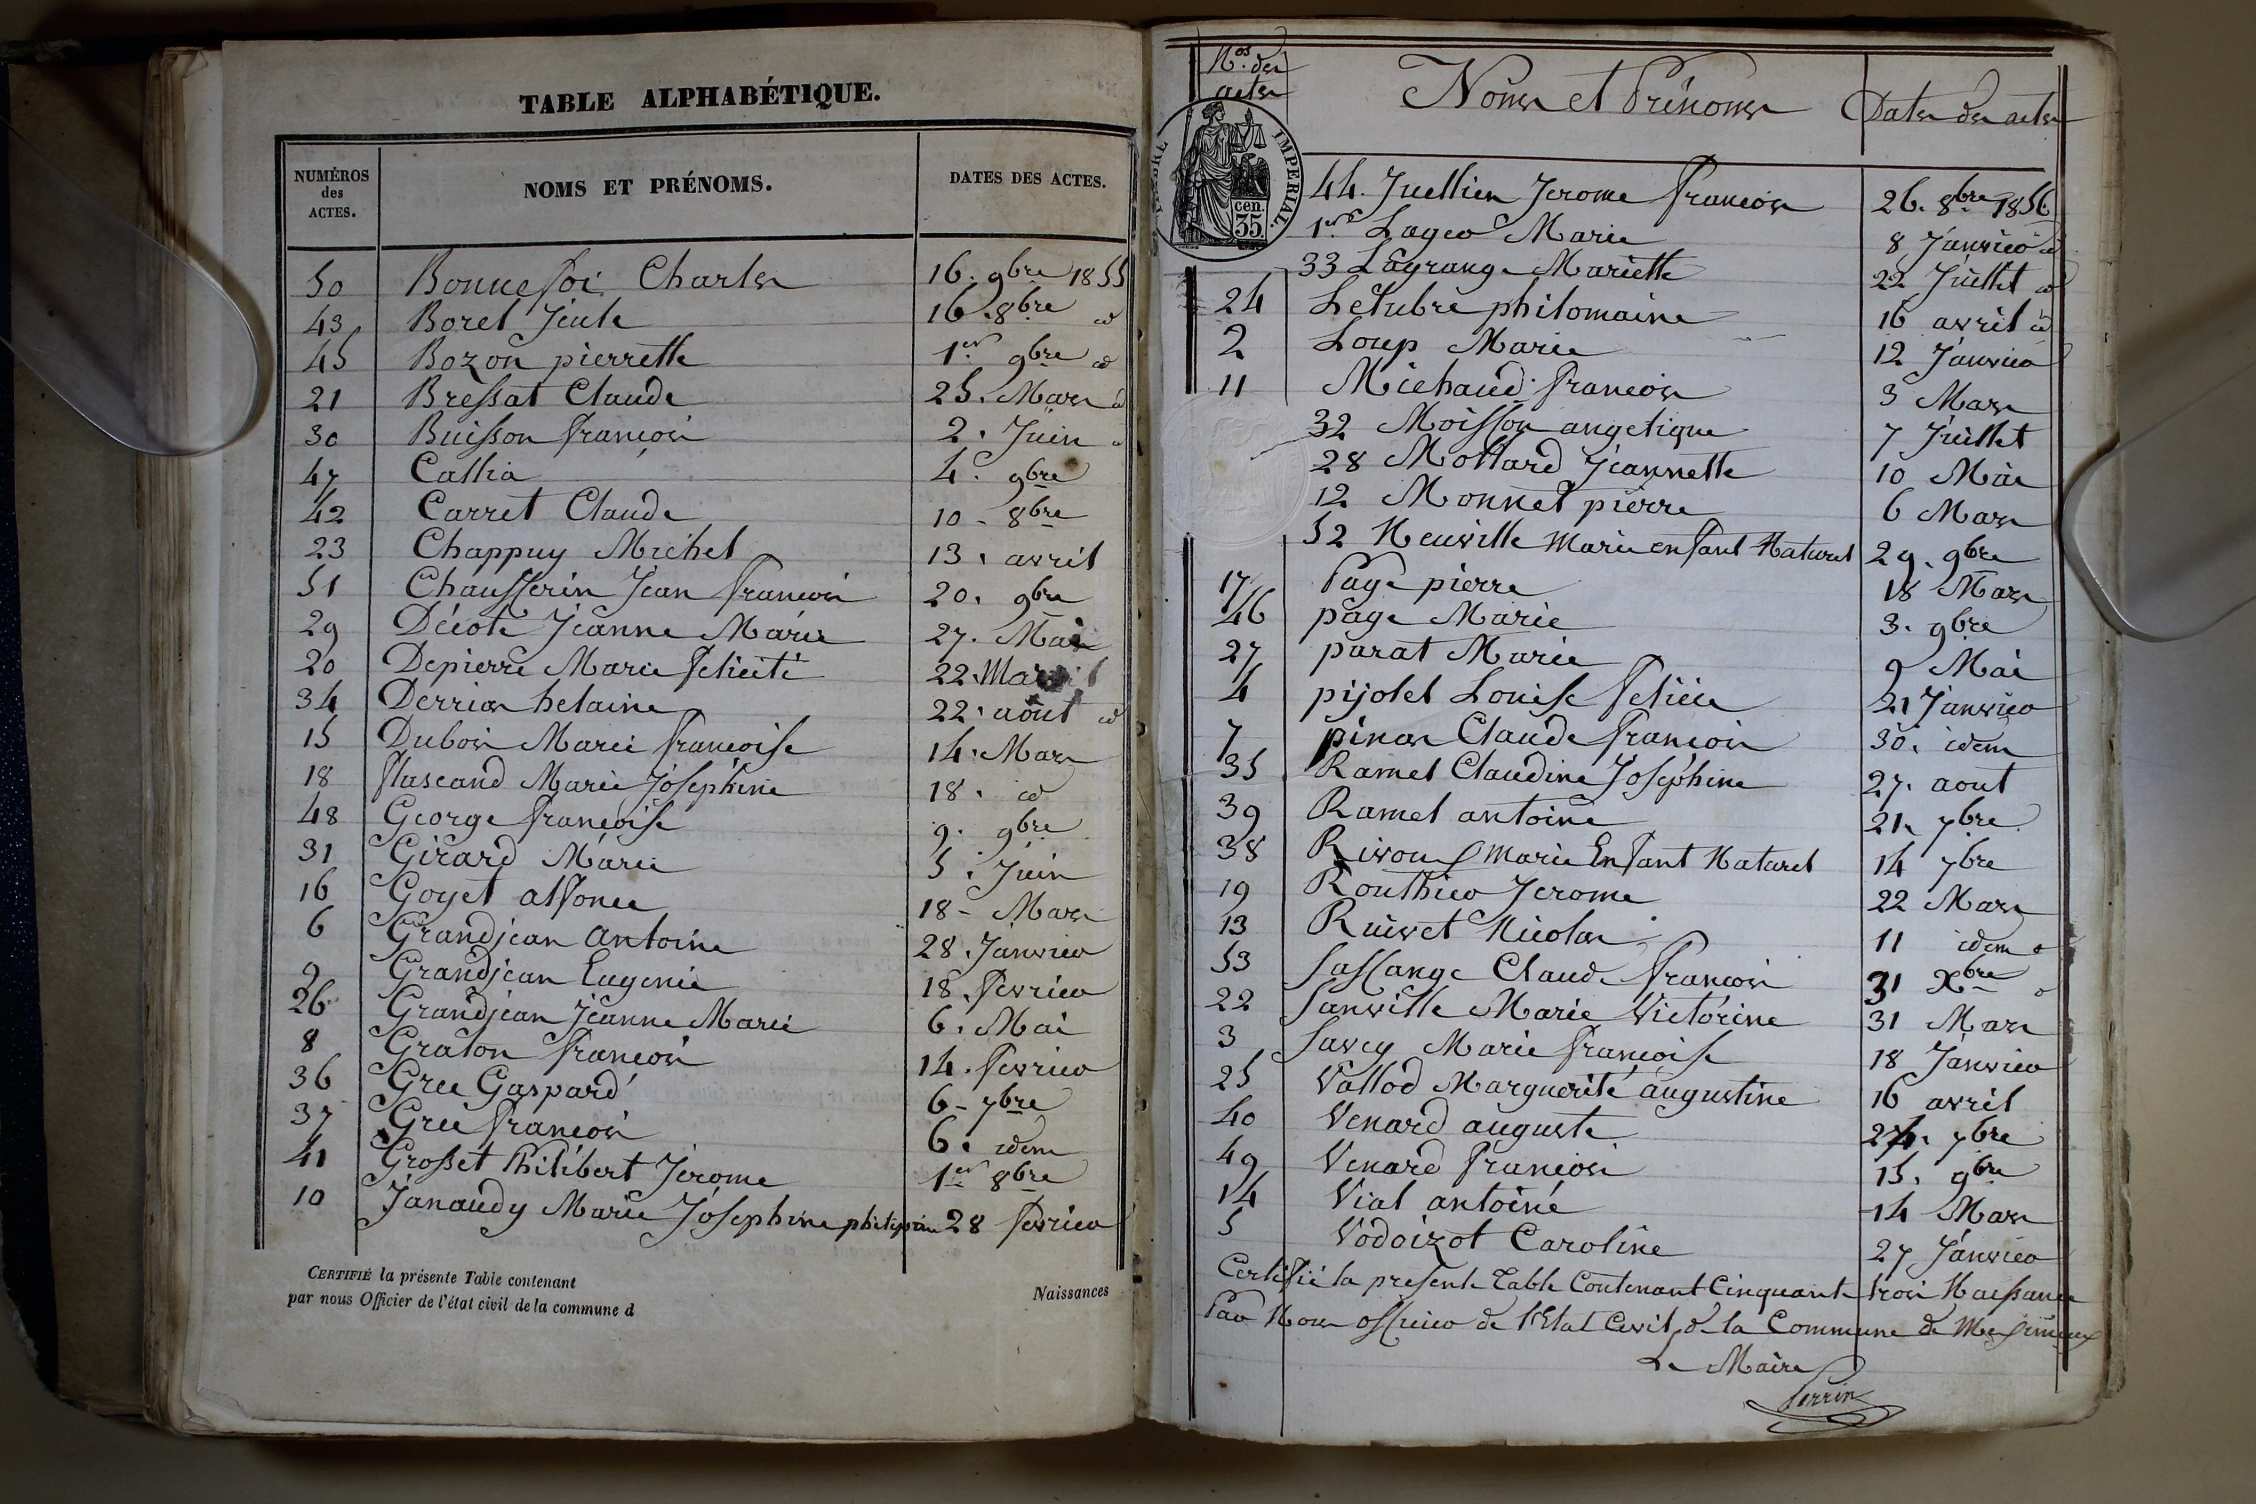 TABLE ALPHABÉTIQUE.
NUMÉROS des ACTES. NOMS ET PRÉNOMS. DATES DES ACTES.
50 Bonnefoi Charles 16. 9bre 1855
43 Borel Jule 16. 8bre id
45 Bozon pierrette 1er 9bre id
21 Bressat Claude 25. Mars id
30 Buisson françois 2. Juin
47 Callia 4. 9bre
42 Carret Claude 10 - 8bre
23 Chappuy Michel 13. avril
51 Chausserin Jean françois 20. 9bre
29 Décote Jeanne Marie 27. Mai
20 Depierre Marie felicité 22. Mars
34 Derrias helaine 22. aout id
15 Dubois Marie françoise 14. Mars
18 flascand Marie Josephine 18. id
48 George françoise 9. 9bre
31 Girard Marie 5. Juin
16 Goyet alfonce 18 - Mars
6 Grandjean Antoine 28. Janvier
9 Grandjean Eugenie 18. fevrier
26 Grandjean Jeanne Marie 6. Mai
8 Graton françois 14. fevrier
36 Gree Gaspard 6 - 7bre
37 Gree françois 6. idem
41 Grosset Philibert Jerome 1er 8bre
10 Janaudy Marie Josephine 28 fevrier
CERTIFIÉ la présente Table contenant Naissances
par nous Officier de l'état civil de la commune d
Nos des actes Noms et Prénoms Dates des actes
TIMBRE IMPERIAL.
cen. 35.
44. Juellien Jerome françois 26. 8bre 1856
1er Lager Marie 8 Janvier id
33 Lagrange Mariette 22 Juillet id
24 Letubre philomaine 16 avril id
2 Loup Marie 12 Janvier
11 Michaud françois 3 Mars
32 Moisson angelique 7 Juillet
28 Mollard Jeannette 10 Mai
12 Monnet pierre 6 Mars
52 Neuville Marie enfant Naturel 29. 9bre
17 Page pierre 18 Mars
46 page Marie 3. 9bre
27 parat Marie 9 Mai
4 pijolet Louise felicie 21 Janvier
7 pinas Claude françois 30. idem
35 Ramel Claudine Josephine 27. aout
39 Ramel antoine 21. 7bre
38 Rivou Marie Enfant Naturel 14 7bre
19 Routhier Jerome 22 Mars
13 Ruivet Nicolas 11 idem
53 Sassange Claude françois 31 Xbre
22 Sanville Marie Victorine 31 Mars
3 Savey Marie françoise 18 Janvier
25 Vallod Marguerite augustine 16 avril
40 Venard auguste 24. 7bre
49 Venard françois 15. 9bre
14 Vial antoine 14 Mars
5 Vodoizot Caroline 27 Janvier
Certifié la presente Table Contenant Cinquante trois Naissance
Par Nous officier de l'Etat Civil de la Commune de Meximieux
Le Maire
Perrin